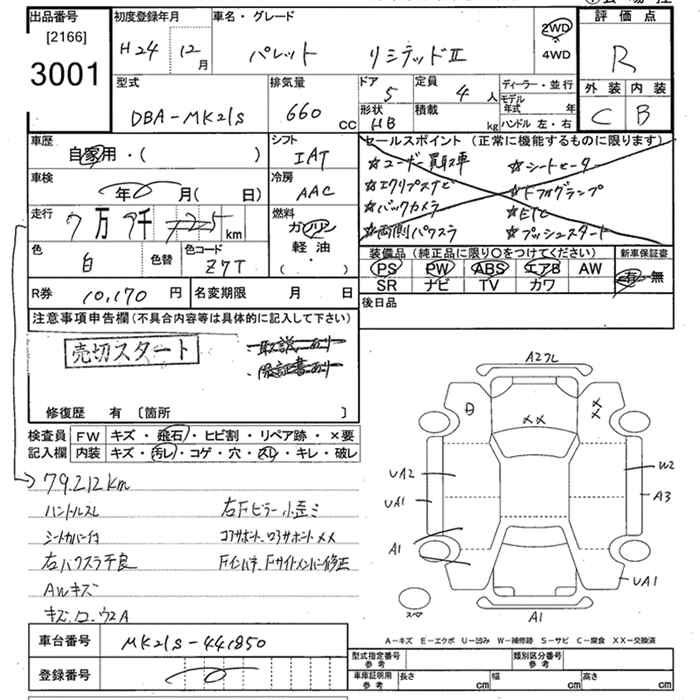 出品番号 初度登録年月 車名・グレード 評価点
[2166]
3001
H24 12月 パレット リミテッドⅡ 2WD
4WD
R
型式 排気量 ドア 定員 ディーラー・並行 外装 内装
DBA-MK21S 660cc 5 4人 モデル年式 年 C B
形状 積載 ハンドル 左・右
HB kg
車歴 シフト セールスポイント(正常に機能するものに限ります)
自家用・( ) IAT ☆ユーザー買取車 ☆シートヒーター
車検 冷房 ☆エクリプスナビ ☆ドアフォグランプ
年 月(日) AAC ☆バックカメラ ☆ETC
走行 燃料 ☆両側パワスラ ☆プッシュスタート
7万9千 km ガソリン
軽油
( ・ )
色 色替 色コード 装備品(純正品に限り○をつけてください) 新車保証書
白 Z7T PS PW ABS エアB AW 有・無
SR ナビ TV カワ
R券 10,170円 名変期限 月 日 後日品
注意事項申告欄(不具合内容等は具体的に記入して下さい)
売切スタート ・取説あり
・保証書あり
修復歴 有 〔箇所 〕
検査員 FW キズ・飛石・ヒビ割・リペア跡・×要
記入欄 内装 キズ・汚レ・コゲ・穴・スレ・キレ・破レ
79212km
ハンドルスレ 右Fピラー小歪ミ
シートカバー付 コアサポート、ロアサポートXX
右パワスラ不良 Fインパネ、Fサイドメンバー修正
AWキズ
キズ、ロ、ウ2A
A2フレ
B XX X X
UA2 W2
UA1 A3
A1
UA1
スペア A1
A-キズ E-エクボ U-凹み W-補修跡 S-サビ C-腐食 XX-交換済
車台番号 MK21S-441850 型式指定番号 参考 類別区分番号 参考
登録番号 車庫証明用 参考 長さ cm 幅 cm 高さ cm